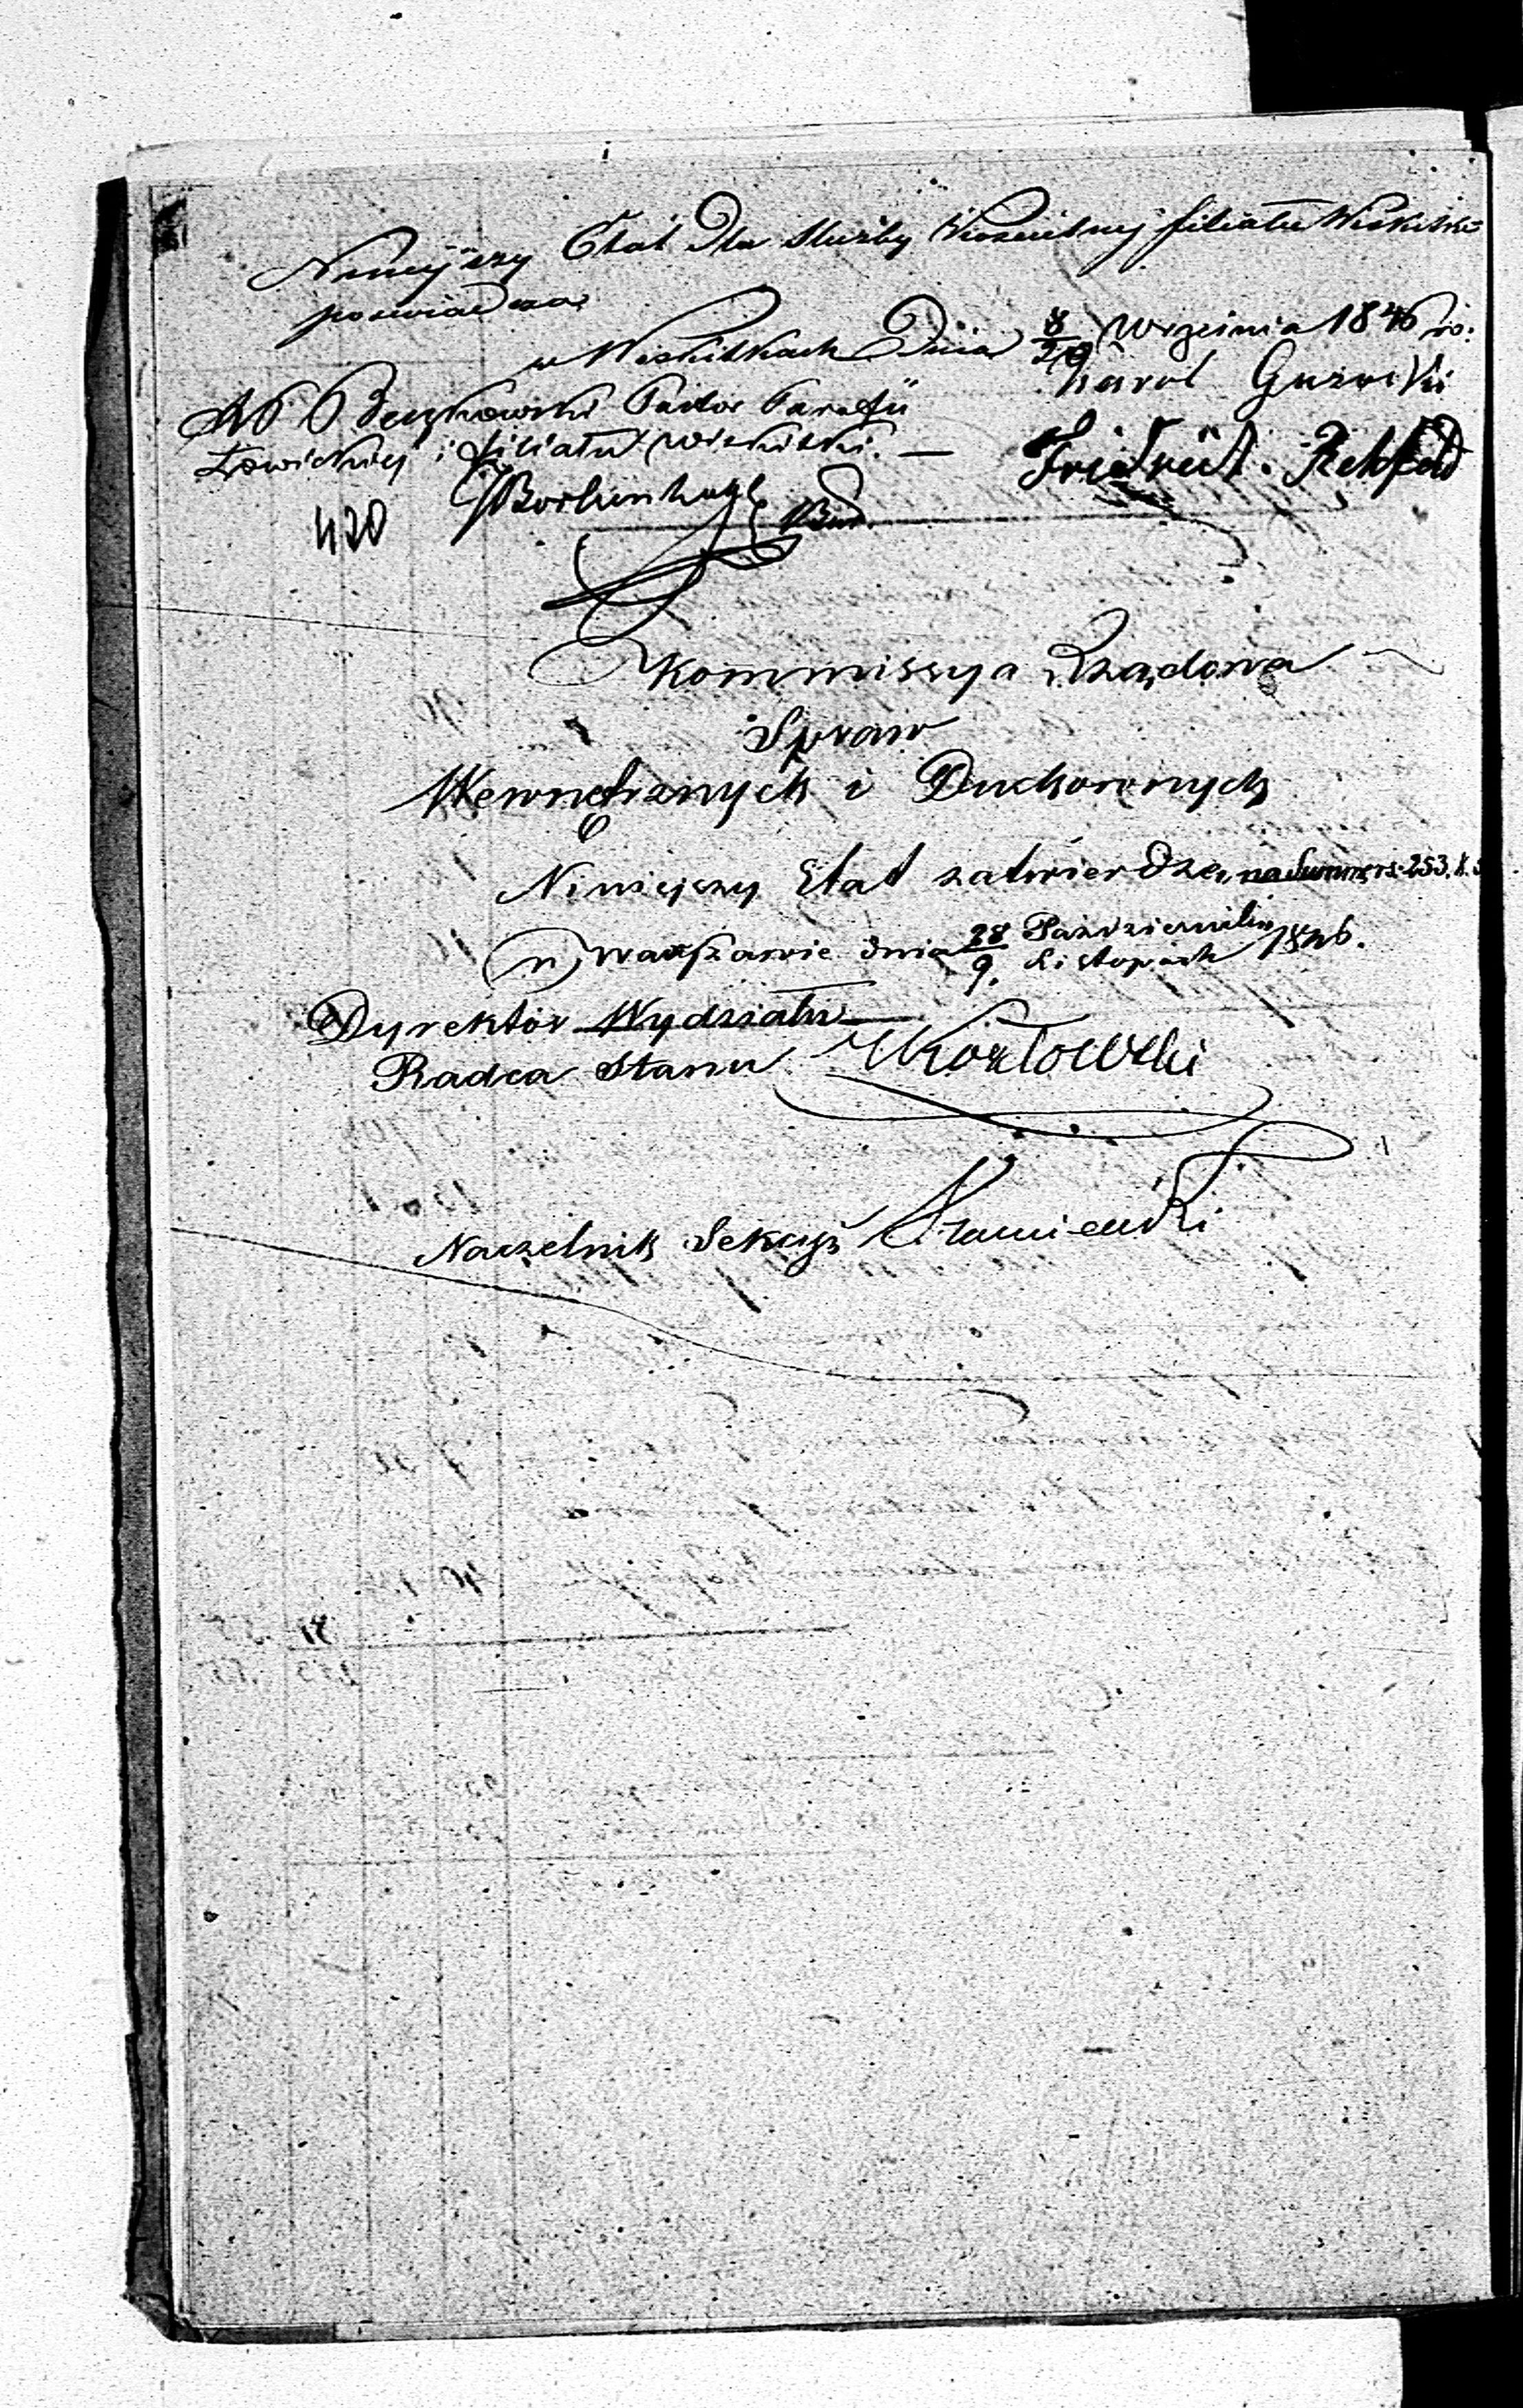 Ninieyszy Etat Dla Służby Kościelney filiału Wiskitki
poswiadcza
w Wiskitkach Dnia 8/20 Września 1846 ro.
Pastor Parafii Karol Gurski
Łowickiey i filiału Wiskitki. — Friedrich. Rehfeld
420
Kommissya Rządowa
Spraw
Wewnętrznych i Duchownych
Ninieyszy Etat zatwierdza, na Summę rs. 253. k.
w Warszawie dnia 28 Października / 9. Listopada 1846.
Dyrektor Wydziału
Radca Stanu Kozłowski
Naczelnik Sekcyi